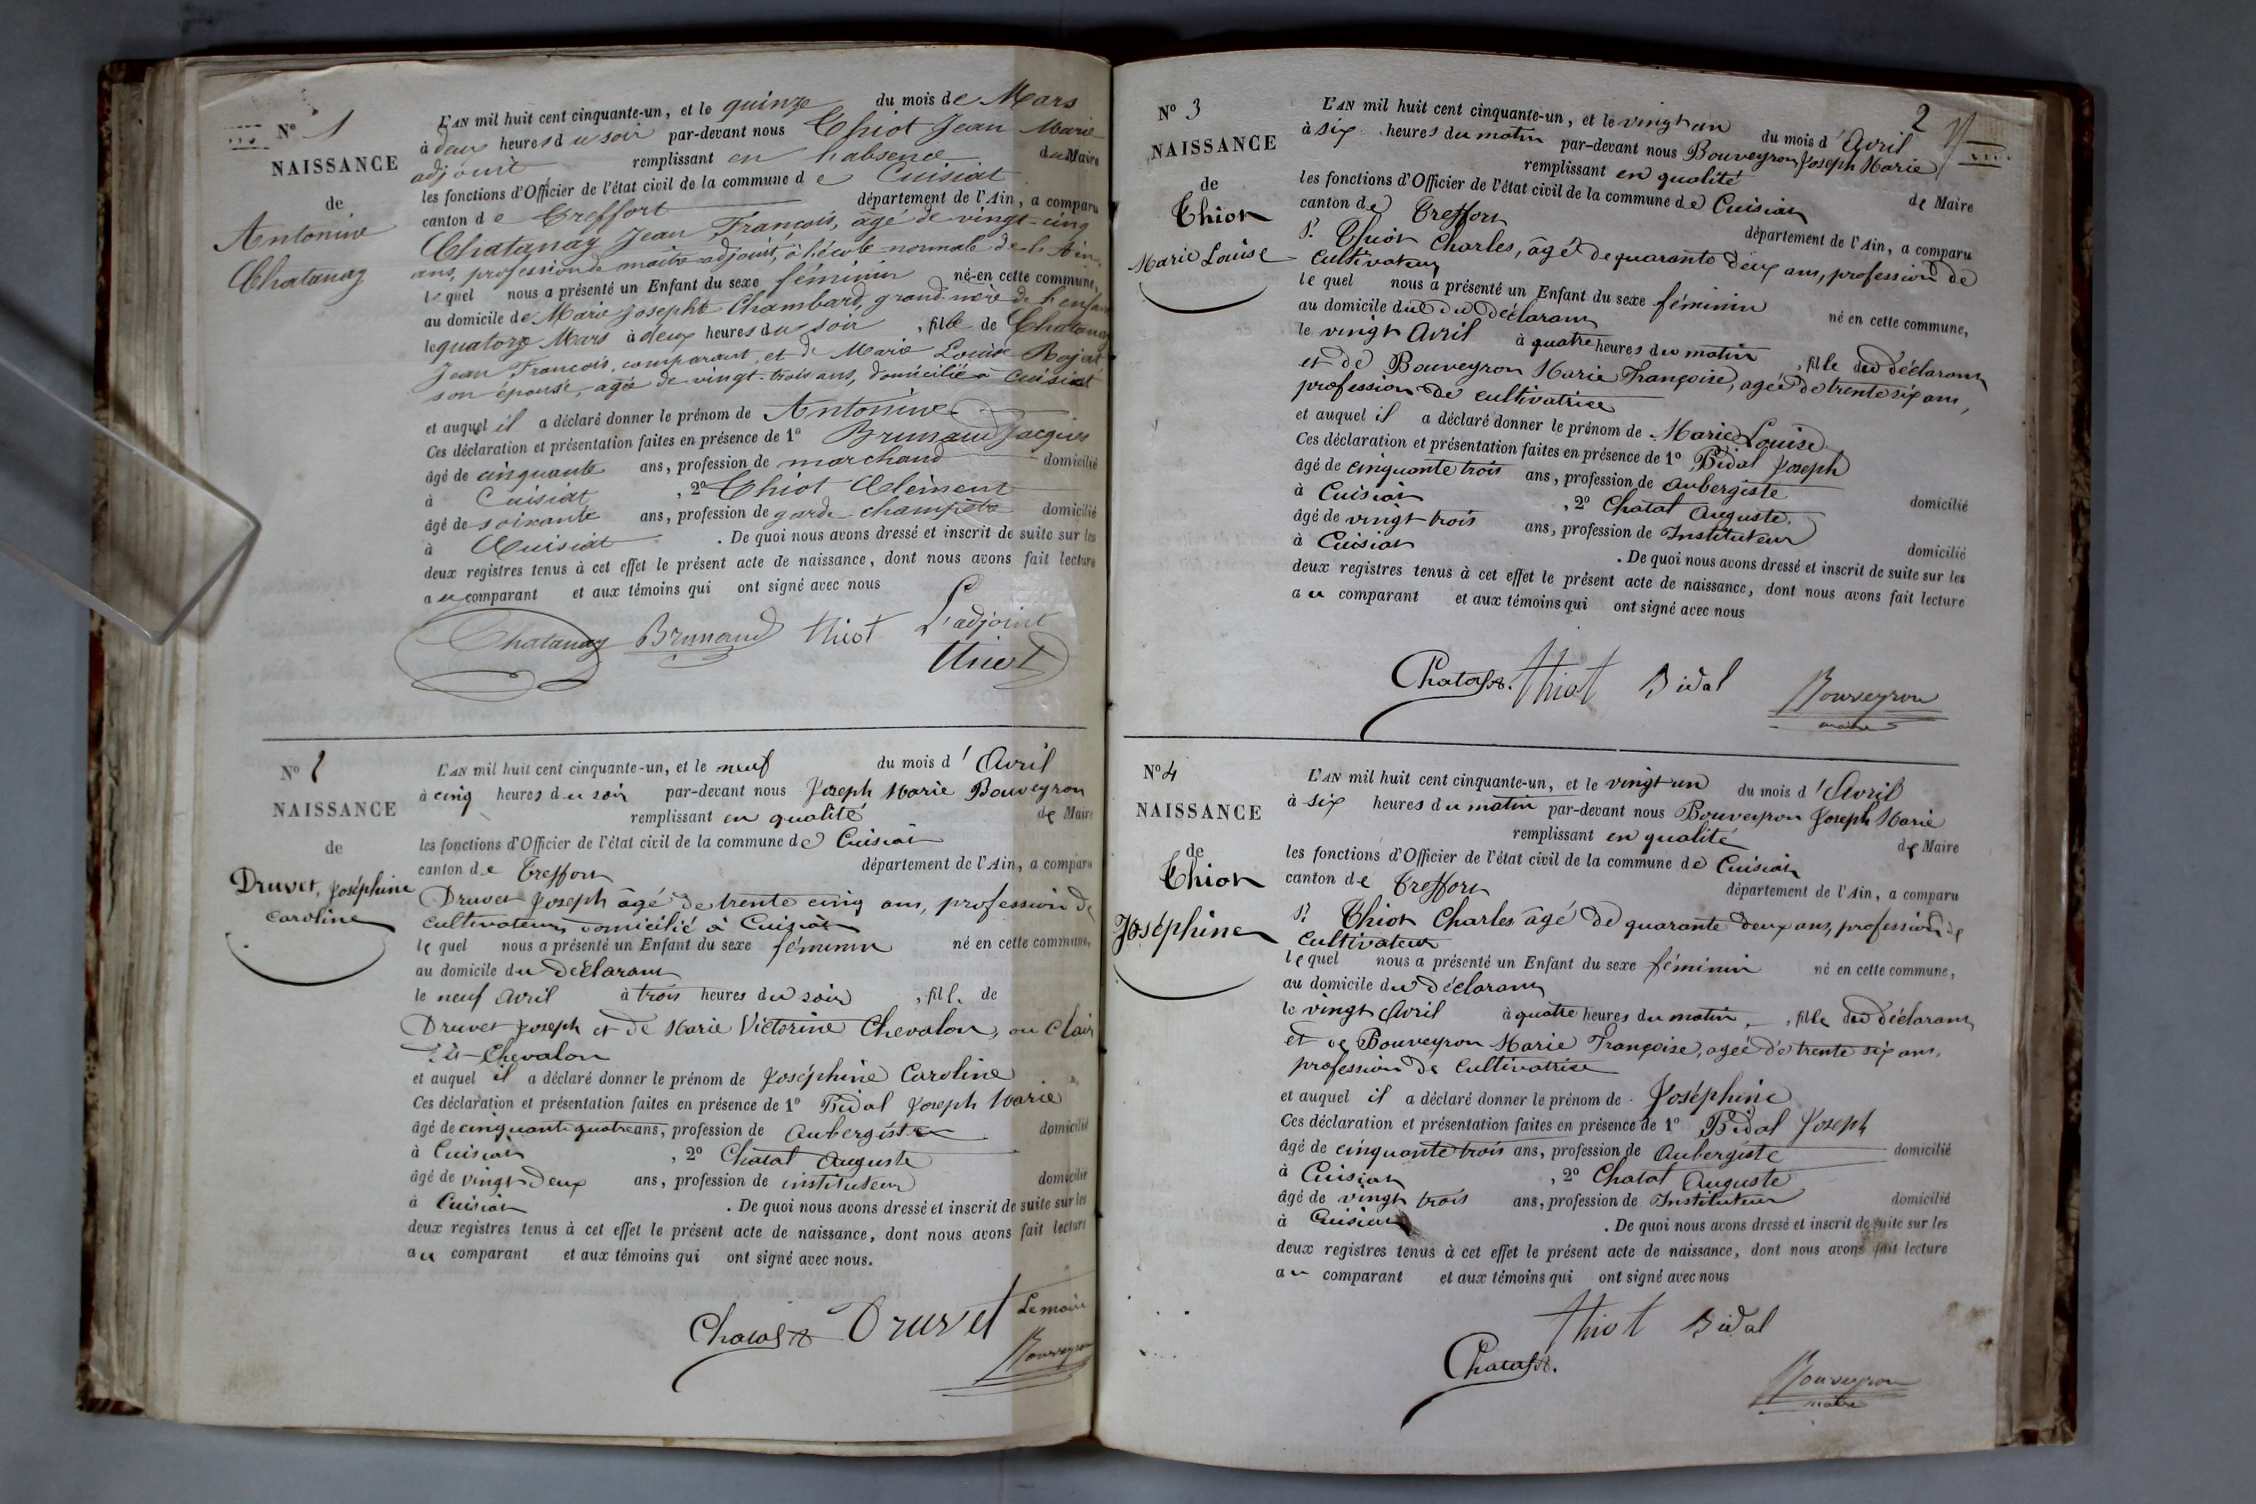 N° 1
NAISSANCE
de
Antonine
Chatanay
L'AN mil huit cent cinquante-un, et le quinze du mois de Mars
à deux heures du soir par-devant nous Thiot Jean Marie
adjoint remplissant en l'absence du Maire
les fonctions d'Officier de l'état civil de la commune de Cuisiat
canton de Treffort département de l'Ain, a comparu
Chatanay Jean François, âgé de vingt-cinq
ans, profession de maitre adjoint, à l'école normale de l'Ain
lequel nous a présenté un Enfant du sexe féminin né en cette commune,
au domicile de Marie Josephte Chambard, grand-mère de l'enfant
le quatorze Mars à deux heures du soir, fille de Chatanay
Jean François, comparant, et de Marie Louise Rojat
son épouse, agée de vingt-trois ans, domiciliée à Cuisiat
et auquel il a déclaré donner le prénom de Antonine
Ces déclaration et présentation faites en présence de 1° Brunaud Jacques
âgé de cinquante ans, profession de marchand domicilié
à Cuisiat, 2° Thiot Clément
âgé de soixante ans, profession de garde champêtre domicilié
à Cuisiat. De quoi nous avons dressé et inscrit de suite sur les
deux registres tenus à cet effet le présent acte de naissance, dont nous avons fait lecture
au comparant et aux témoins qui ont signé avec nous
Chatanay Brunaud thiot L'adjoint
thiot
N° 2
NAISSANCE
de
Druvet, Joséphine
Caroline
L'AN mil huit cent cinquante-un, et le neuf du mois d'Avril
à cinq heures du soir par-devant nous Joseph Marie Bouveyron
remplissant en qualité de Maire
les fonctions d'Officier de l'état civil de la commune de Cuisiat
canton de Treffort département de l'Ain, a comparu
Druvet Joseph âgé de trente cinq ans, profession de
cultivateur domicilié à Cuisiat
lequel nous a présenté un Enfant du sexe féminin né en cette commune,
au domicile du Déclarant
le neuf Avril à trois heures du soir, fille de
Druvet Joseph et de Marie Victorine Chevalon, ou Clair
Chevalon
et auquel il a déclaré donner le prénom de Joséphine Caroline
Ces déclaration et présentation faites en présence de 1° Bidal Joseph Marie
âgé de cinquante quatre ans, profession de Aubergiste domicilié
à Cuisiat, 2° Chatal Auguste
âgé de vingt deux ans, profession de instituteur domicilié
à Cuisiat. De quoi nous avons dressé et inscrit de suite sur les
deux registres tenus à cet effet le présent acte de naissance, dont nous avons fait lecture
au comparant et aux témoins qui ont signé avec nous.
Chatal Druvet Le maire
Bouveyron
2
N° 3
NAISSANCE
de
Thiot
Marie Louise
L'AN mil huit cent cinquante-un, et le vingt un du mois d'Avril
à six heures du matin par-devant nous Bouveyron Joseph Marie
remplissant en qualité de Maire
les fonctions d'Officier de l'état civil de la commune de Cuisiat
canton de Treffort département de l'Ain, a comparu
Sr Thiot Charles, âgé de quarante deux ans, profession de
Cultivateur
lequel nous a présenté un Enfant du sexe féminin né en cette commune,
au domicile du dit Déclarant
le vingt Avril à quatre heures du matin, fille du déclarant
et de Bouveyron Marie Françoise, agée de trente six ans,
profession de cultivatrice
et auquel il a déclaré donner le prénom de Marie Louise
Ces déclaration et présentation faites en présence de 1° Bidal Joseph
âgé de cinquante trois ans, profession de Aubergiste domicilié
à Cuisiat, 2° Chatal Auguste
âgé de vingt trois ans, profession de Instituteur domicilié
à Cuisiat. De quoi nous avons dressé et inscrit de suite sur les
deux registres tenus à cet effet le présent acte de naissance, dont nous avons fait lecture
au comparant et aux témoins qui ont signé avec nous
Chatal thiot Bidal Bouveyron
maire
N° 4
NAISSANCE
de
Thiot
Joséphine
L'AN mil huit cent cinquante-un, et le vingt un du mois d'Avril
à six heures du matin par-devant nous Bouveyron Joseph Marie
remplissant en qualité de Maire
les fonctions d'Officier de l'état civil de la commune de Cuisiat
canton de Treffort département de l'Ain, a comparu
Sr Thiot Charles âgé de quarante deux ans, profession de
Cultivateur
lequel nous a présenté un Enfant du sexe féminin né en cette commune,
au domicile du déclarant
le vingt Avril à quatre heures du matin, fille du déclarant
et de Bouveyron Marie Françoise, agée de trente six ans,
profession de cultivatrice
et auquel il a déclaré donner le prénom de Joséphine
Ces déclaration et présentation faites en présence de 1° Bidal Joseph
âgé de cinquante trois ans, profession de Aubergiste domicilié
à Cuisiat, 2° Chatal Auguste
âgé de vingt trois ans, profession de Instituteur domicilié
à Cuisiat. De quoi nous avons dressé et inscrit de suite sur les
deux registres tenus à cet effet le présent acte de naissance, dont nous avons fait lecture
au comparant et aux témoins qui ont signé avec nous
thiot Bidal
Chatal Bouveyron
maire